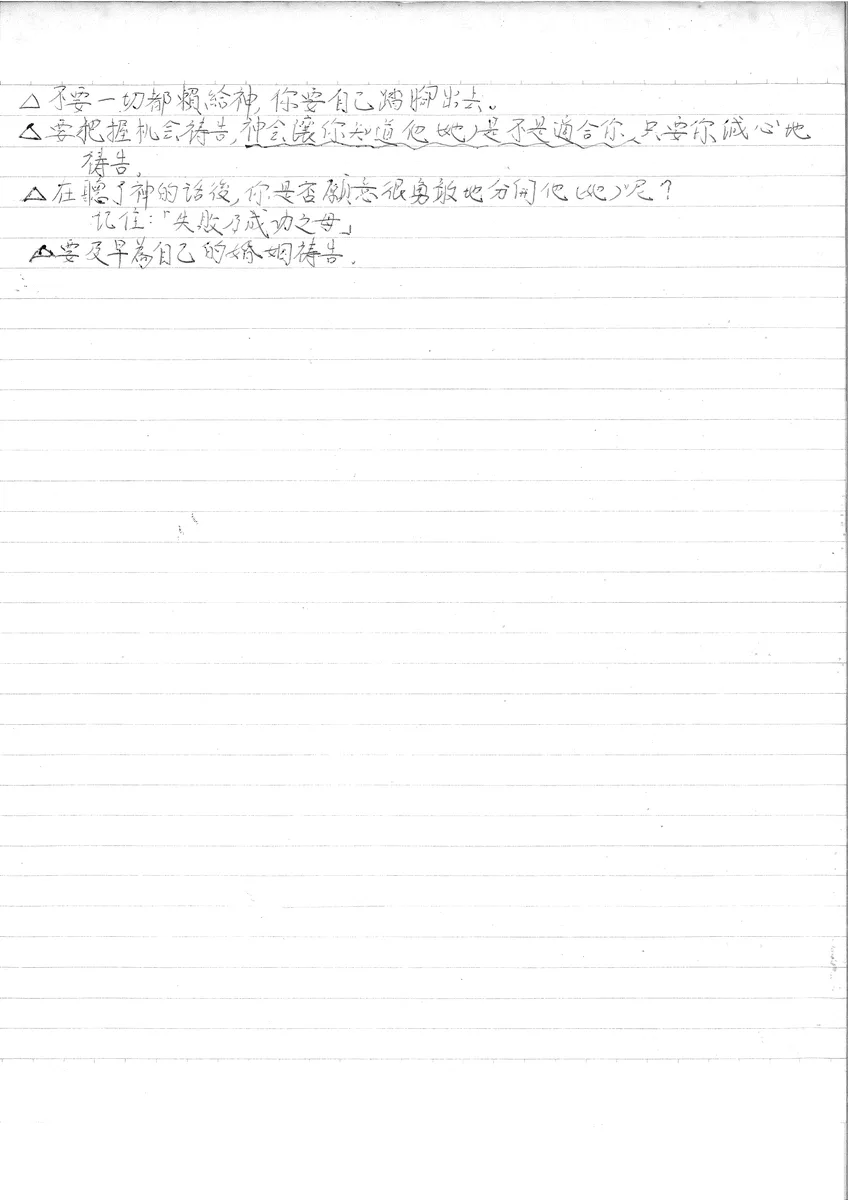 △ 不要一切都賴給神,你要自己踏腳出去。
△ 要把握机会祷告,神会讓你知道他(她)是不是適合你,只要你诚心地
祷告。
△ 在聽了神的话後,你是否願意很勇敢地分開他(她)呢?
记住:「失敗乃成功之母」
△ 要及早為自己的婚姻祷告。